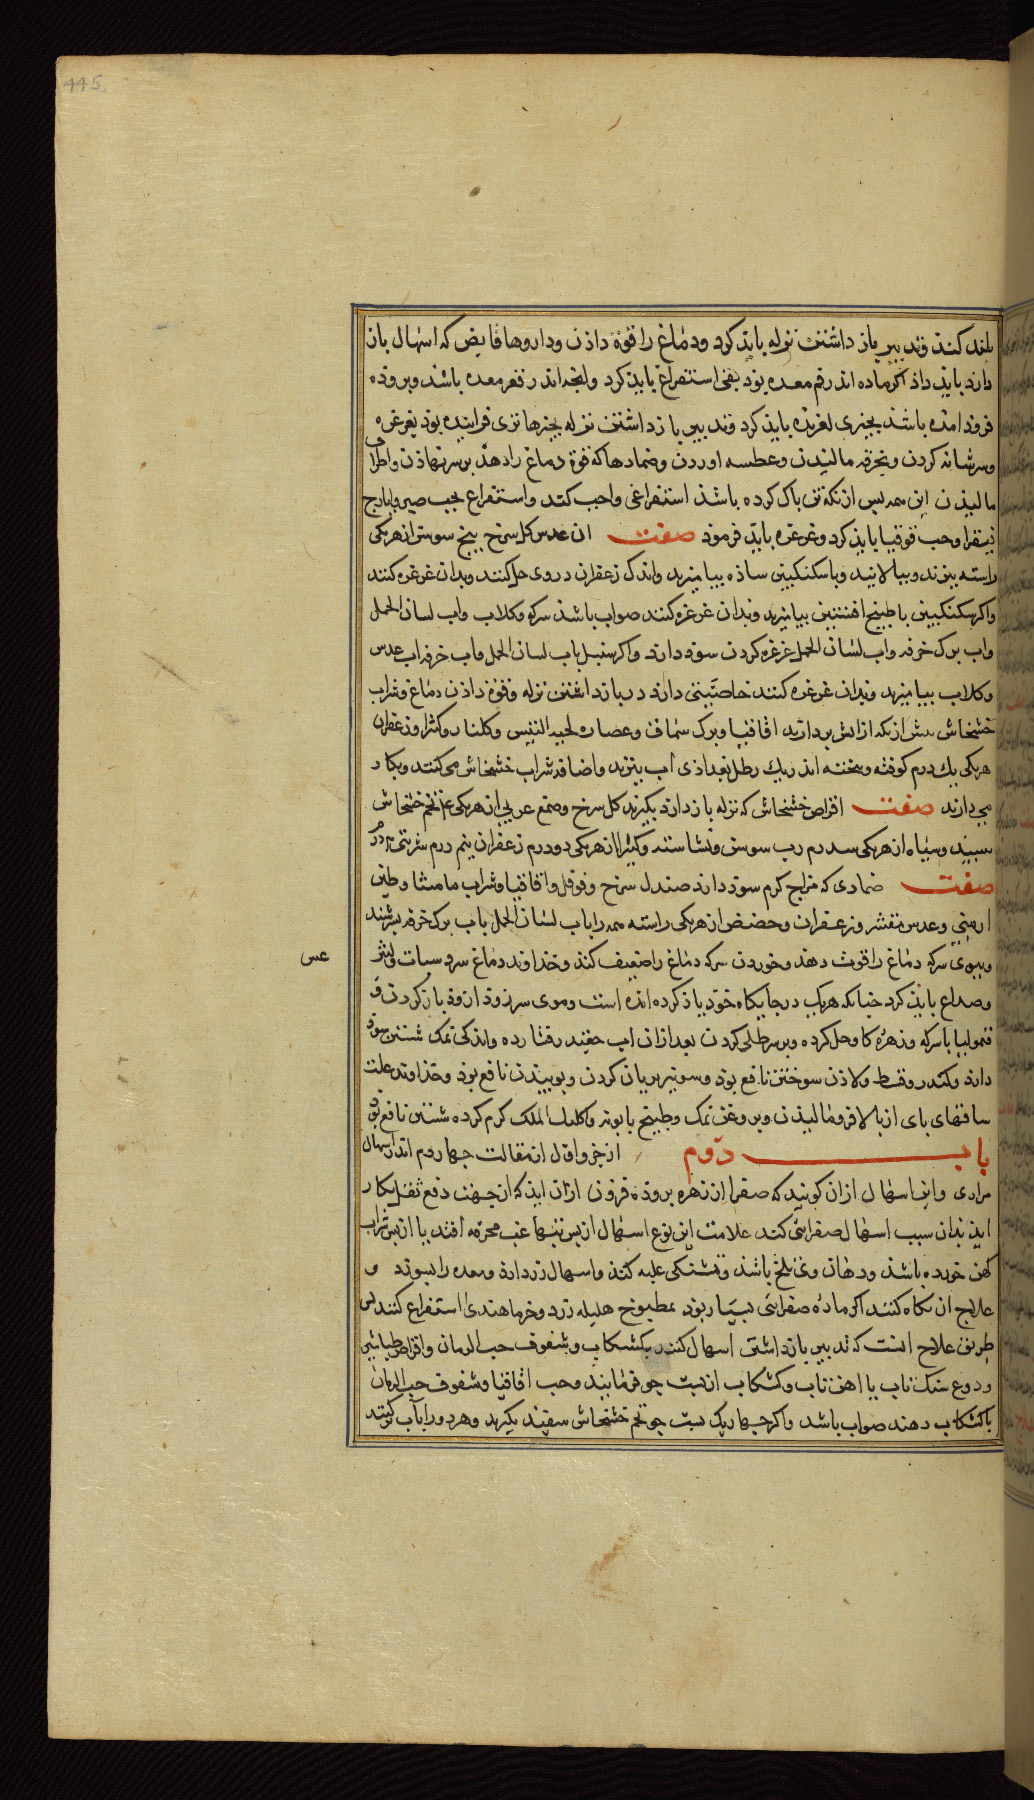 445
بلند کنند وتدبیر باز داشتن نزله باید کرد ودماغ را قوة داذن وداروها قابض که اسهال باز
دارد بایذ داذ اکر ماده اندر فم معده بوذ بقی استفراغ بایذ کرد وانجه اندر قعر معده باشذ وبروده
فروذ امذه باشذ بچیزی لغزنده بایذ کرد وتدبیر باز داشتن نزله بچیزها نزی فزاینده بوذ بغرغره
وسر شانه کردن وبخرقه مالیذن وعطسه اوردن وضمادها که قوة دماغ را دهذ بر سر نهاذن واطراف
مالیذن این همه پس ازانکه تن باک کرده باشذ استفراغی واجب کند واستفراغ بحب صبر وایارج
فیقرا وحب قوقیا بایذ کرد وغرغره بایذ فرموذ صفت ان عدس کل سرخ بیخ سوسن از هر یکی
راسته ببزند وببالایند وبا سکنکبین ساذه بیامیزند واندک زعفران در وی حل کنند وبدان غرغره کنند
واکر سکنکبین با طبیخ افسنتین بیامیزند وبدان غرغره کنند صواب باشذ سرکه وکلاب واب لسان الحمل
واب برک خرفه واب لسان الحمل غرغره کردن سوذ دارد واکر سنبل باب لسان الحمل واب خرفه اب عدس
وکلاب بیامیزند وبدان غرغره کنند خاصیتی دارد در باز داشتن نزله وقوة داذن دماغ وشراب
خشخاش بیش ازانکه از اتش بردارند اقاقیا وبرک سماق وعصاره لحیة التیس وکلنار وکثیرا وزعفران
هر یکی یک درم کوفته وبیخته اندر یک رطل بغداذی اب ببزند واضافه شراب خشخاش می کنند وبکار
می دارند صفت اقراص خشخاش که نزله باز دارد بکیرند کل سرخ وصمغ عربی از هر یکی ۴م تخم خشخاش
سبید وسیاه از هر یکی سه درم رب سوس ونشاسته وکثیرا از هر یکی دو درم زعفران نیم درم شربتی
صفت ضمادی که مزاج کرم سوذ دارد صندل سرخ وفوفل واقاقیا وشراب مامیثا وطین
ارمنی وعدس مقشر وزعفران وحضض از هر یکی راسته همه را باب لسان الحمل باب برک خرفه بسرشند
وببوی سرکه دماغ را قوت دهد وخوردن سرکه دماغ را ضعیف کند وخداوند دماغ سرد سبات ولیثرغس
وصداع بایذ کرد جنانکه هر یک در جایکاه خوذ یاذ کرده امذه است وموی سر زوذ ازوذ باز کردن و
قیمولیا با سرکه وزهره کاو حل کرده وبر سر طلی کردن بعد ازان اب جغندر رقتا رده واندکی نمک شستن سوذ
دارد وکندر وقسط ولاذن سوختن نافع بوذ وسوتیر بریان کردن وبوییذن نافع بوذ وخداوند علت
ساقهای بای از بالا فرو مالیذن وبروغن نمک وطبیخ بابونه واکلیل الملک کرم کرده شستن نافع بوذ
باب دوم از جزو اول از مقالت جهاردم اندر اسهال
مراری واین اسهال ازان کویند که صفرا از زهره بروده فزون ازان ایذ که از جهت دفع ثفل بکار
ایذ بذان سبب اسهال صفرائی کند علامت این نوع اسهال از بس تبهاء غب محرقه افتد یا از بس شراب
کهن خورده باشذ ودهان وی تلخ باشذ وتشنکی غلبه کند واسهال زرد اردو معده را بسوزد و
علاج ان نکاه کنند اکر ماده صفرائی بسیار بوذ بمطبوخ هلیله زرد وخرما هندی استفراغ کنند پس
طریق علاج انست که تدبیر باز داشتن اسهال کنند بکشکاب وسفوف حب الرمان واقراص طباشیر
ودوغ سنک تاب یا اهن تاب وکشکاب از بست جو فرمایند وحب اقاقیا وسفوف حب الرمان
با کشکاب دهند صواب باشد واکر جهار یک بست جو تخم خشخاش سفید بکیرند وهر دو را باب کرفتند